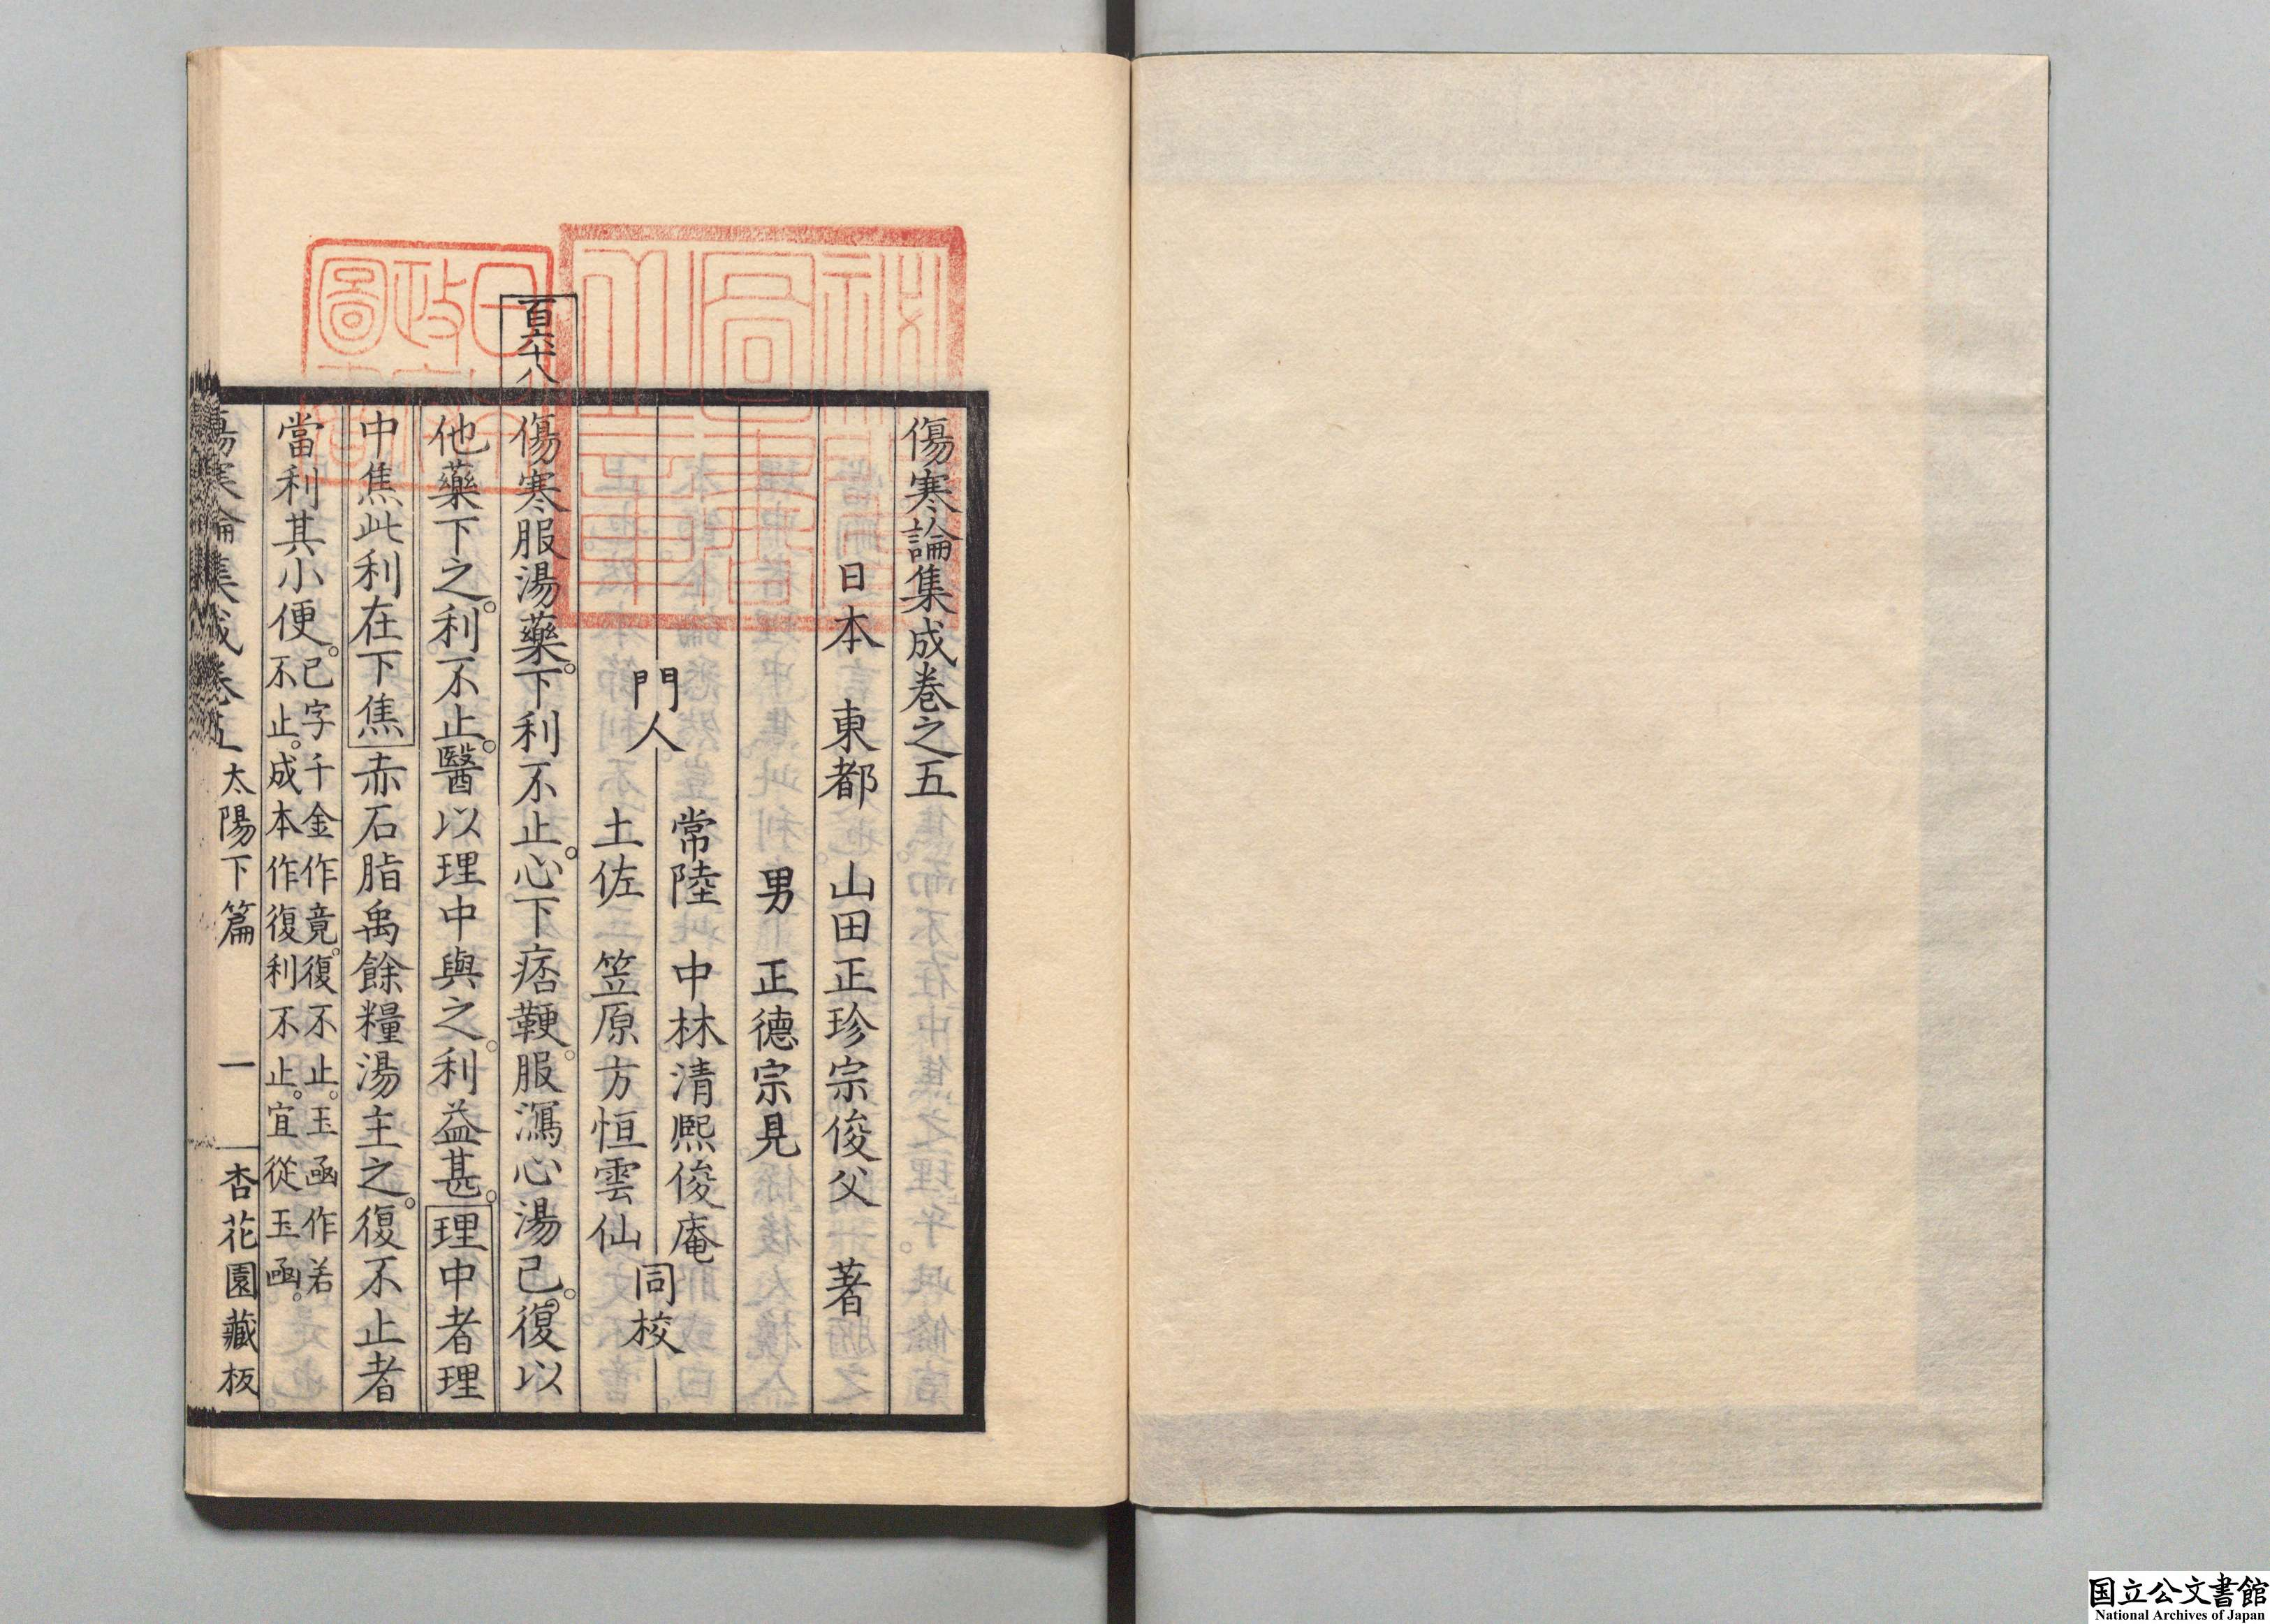 傷寒論集成卷之五
日本　東都　山田正珍宗俊父　著
男　正德宗見
門人　常陸　中林清熙俊庵
土佐　笠原方恒雲仙　同校
百六十八
傷寒服湯藥。下利不止。心下痞鞕。服瀉心湯已。復以
他藥下之。利不止。醫以理中與之。利益甚。理中者理
中焦此利在下焦赤石脂禹餘糧湯主之。復不止者
當利其小便。已字千金作竟。復不止。玉函作若
不止。成本作復利不止。宜從玉函。
傷寒論集成卷五　太陽下篇　一　杏花園藏板
国立公文書館
National Archives of Japan